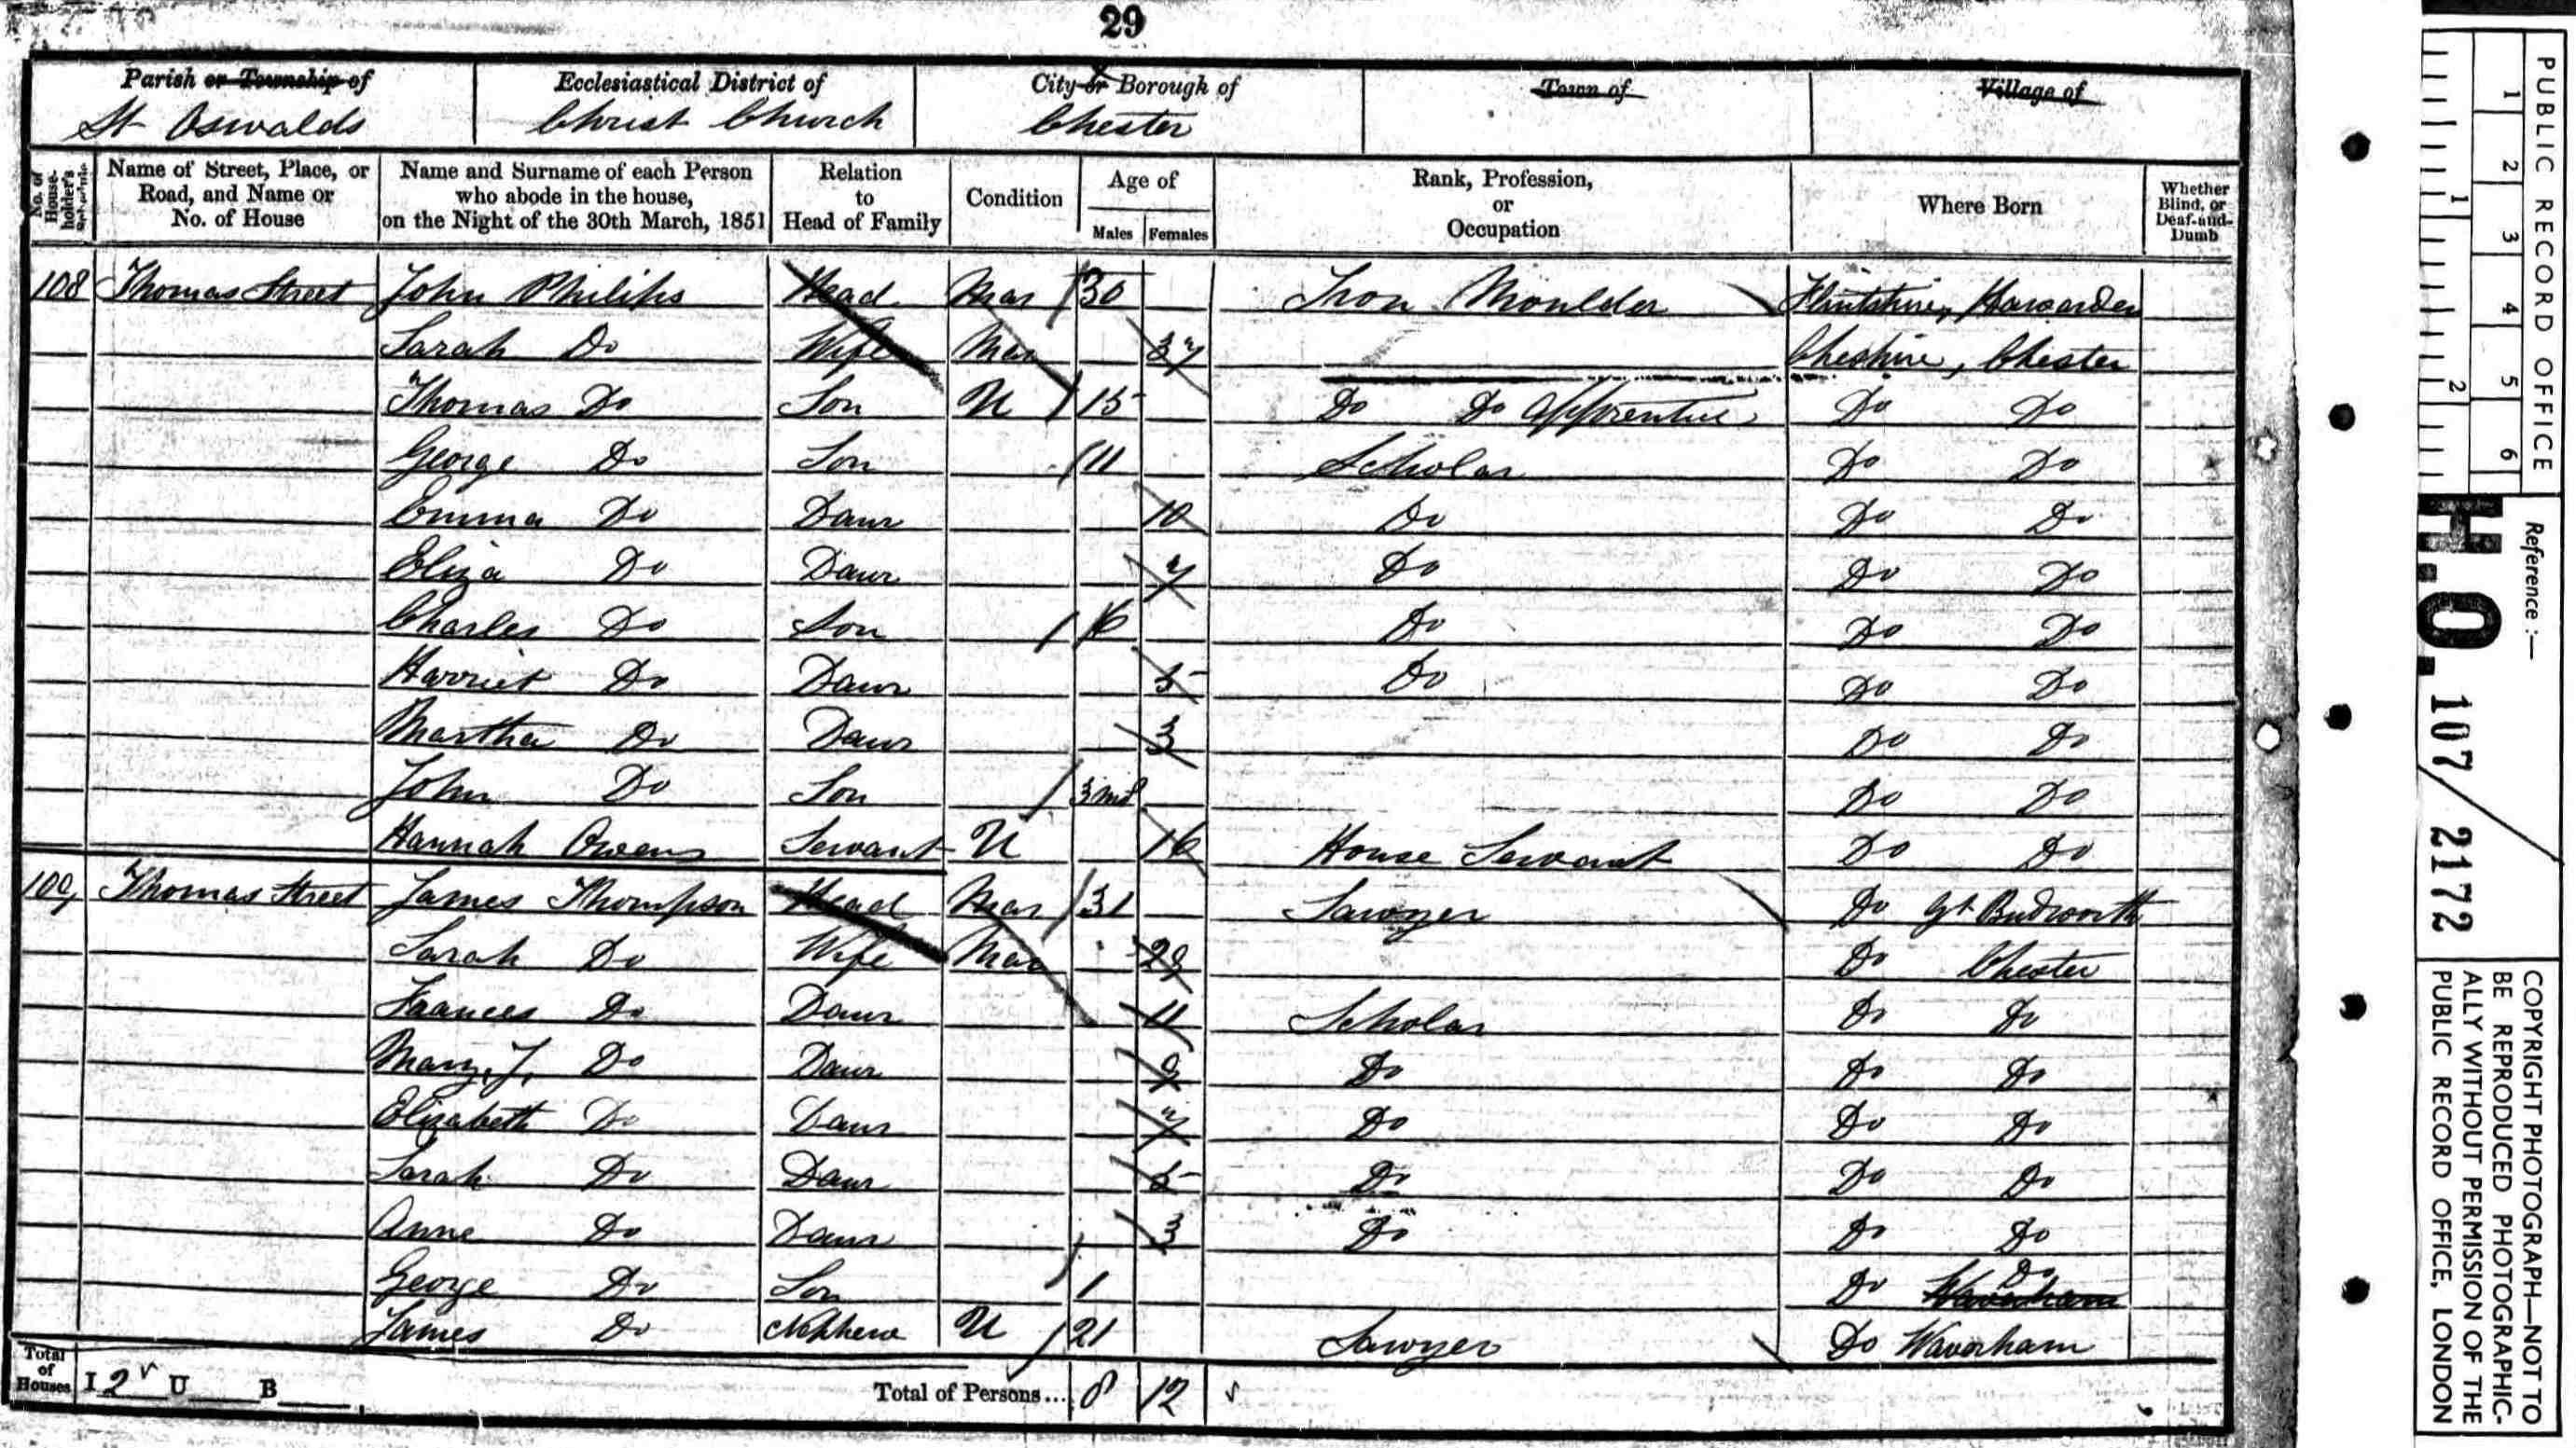 29
Parish or Township of
Ecclesiastical District of
City or Borough of
Town of
Village of
St Oswalds
Christ Church
Chester
No. of House-holder's
Name of Street, Place, or Road, and Name or No. of House
Name and Surname of each Person who abode in the house, on the Night of the 30th March, 1851
Relation to Head of Family
Condition
Age of
Males
Females
Rank, Profession, or Occupation
Where Born
Whether Blind, or Deaf-and-Dumb
108 Thomas Street John Philips Head Mar 30 Iron Moulder Flintshire, Hawarden
Sarah Do Wife Mar 37 Cheshire, Chester
Thomas Do Son U 15 Do Do Apprentice Do Do
George Do Son 11 Scholar Do Do
Emma Do Daur 10 Do Do Do
Eliza Do Daur 7 Do Do Do
Charles Do Son 6 Do Do Do
Harriet Do Daur 5 Do Do Do
Martha Do Daur 3 Do Do
John Do Son 3 ms Do Do
Hannah Owens Servant U 16 House Servant Do Do
109 Thomas Street James Thompson Head Mar 31 Sawyer Do Gt Budworth
Sarah Do Wife Mar 29 Do Chester
Frances Do Daur 11 Scholar Do Do
Mary, J, Do Daur 9 Do Do Do
Elizabeth Do Daur 7 Do Do Do
Sarah Do Daur 5 Do Do Do
Anne Do Daur 3 Do Do Do
George Do Son 1 Do Do
James Do Nephew U 21 Sawyer Do Waverham
Total of Houses I 2 U B Total of Persons... 8 12
PUBLIC RECORD OFFICE
1 2 3 4 5 6
1 2
Reference :—
H.O. 107/2172
COPYRIGHT PHOTOGRAPH—NOT TO
BE REPRODUCED PHOTOGRAPHIC-
ALLY WITHOUT PERMISSION OF THE
PUBLIC RECORD OFFICE, LONDON